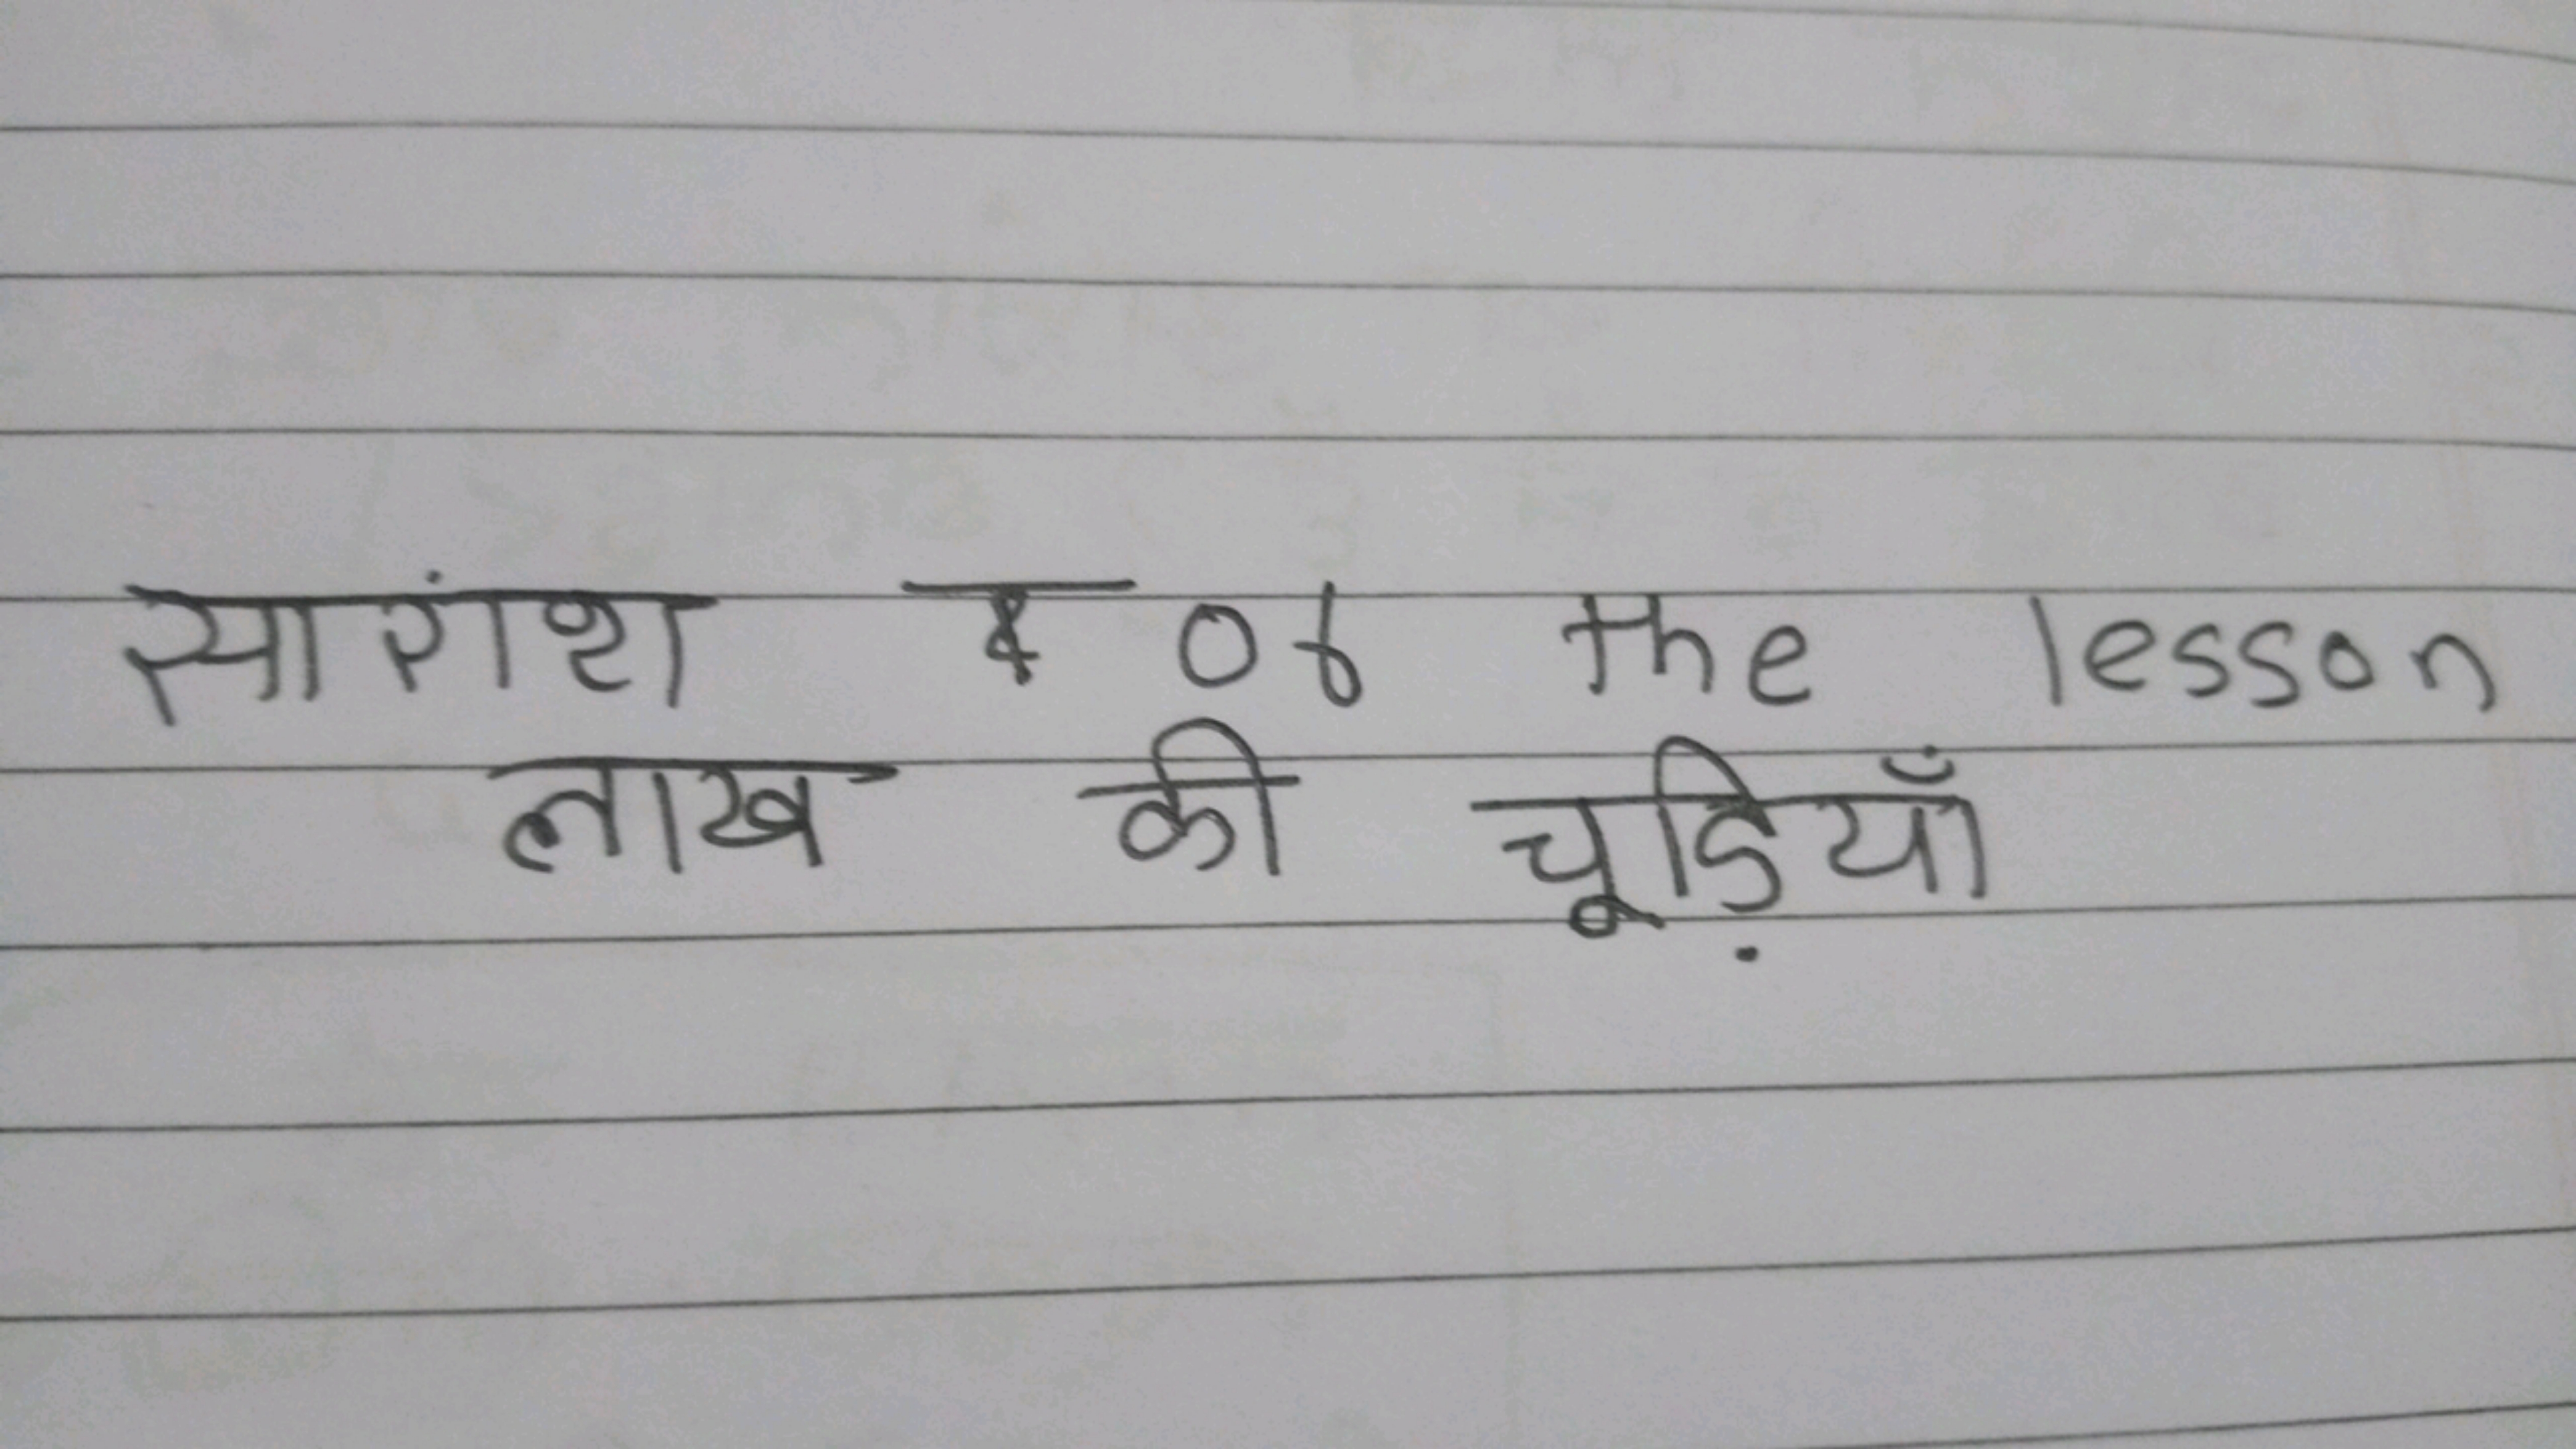 सारांश of the lesson
लाख की चूड़ियाँ